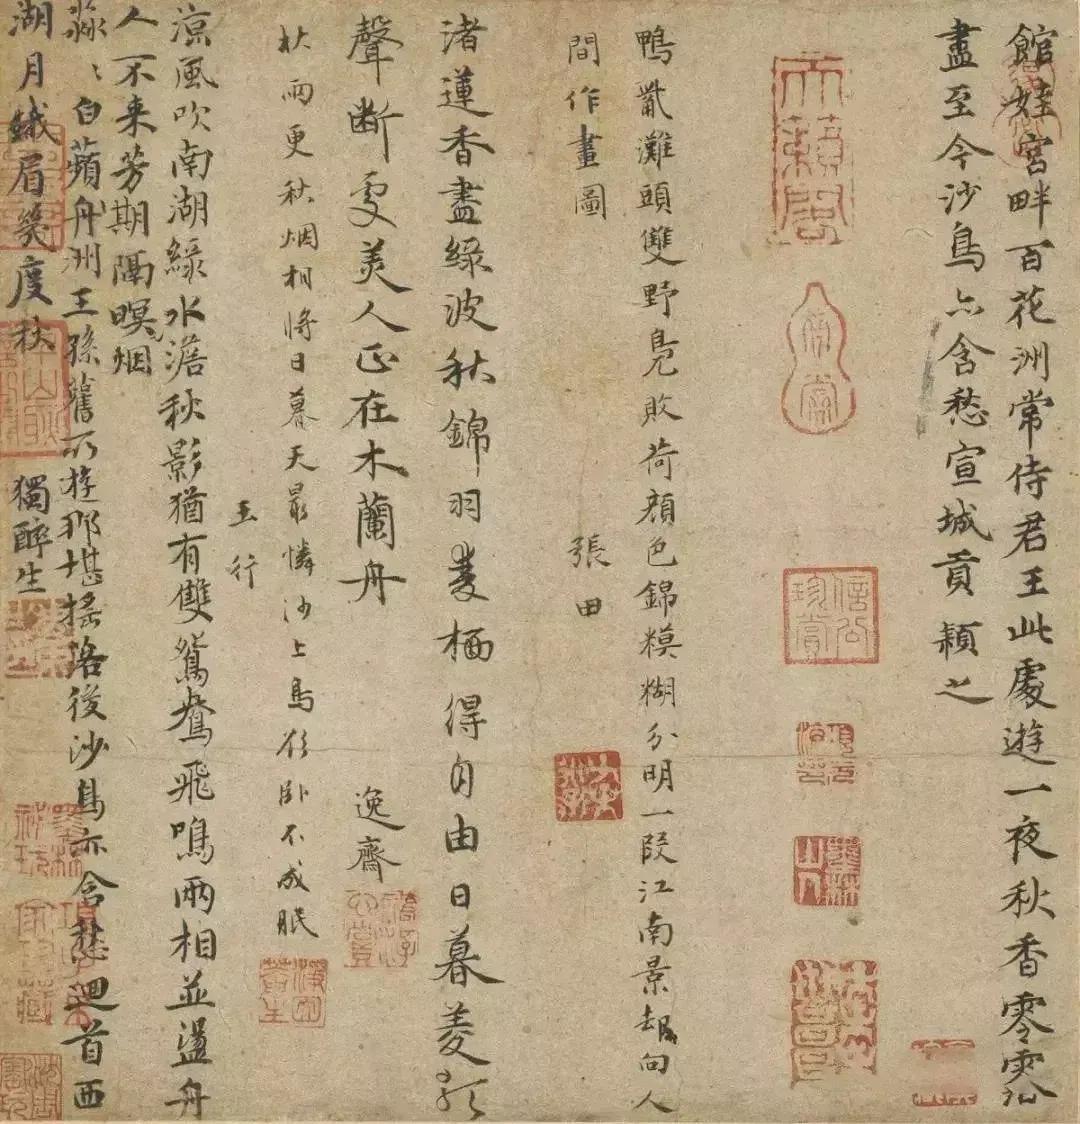 館娃宮畔百花洲常侍君王此處遊一夜秋香零落
盡至今沙鳥亦含愁宣城貢穎之
天籟閣
信公珍賞
鴨觜灘頭雙野鳧敗荷顏色錦糢糊分明一段江南景却向人
間作畫圖 張田
渚蓮香盡綠波秋錦羽雙栖得自由日暮菱歌
聲斷處美人正在木蘭舟 逸齋
秋雨更秋烟相將日暮天最憐沙上鳥欲卧不成眠
王行
涼風吹南湖綠水澹秋影猶有雙鴛鴦飛鳴兩相並盪舟
人不來芳期隔暝烟
淼〻白蘋舟洲王孫舊所遊那堪搖落後沙鳥亦含愁迴首西
湖月蛾眉幾度秋 獨醉生